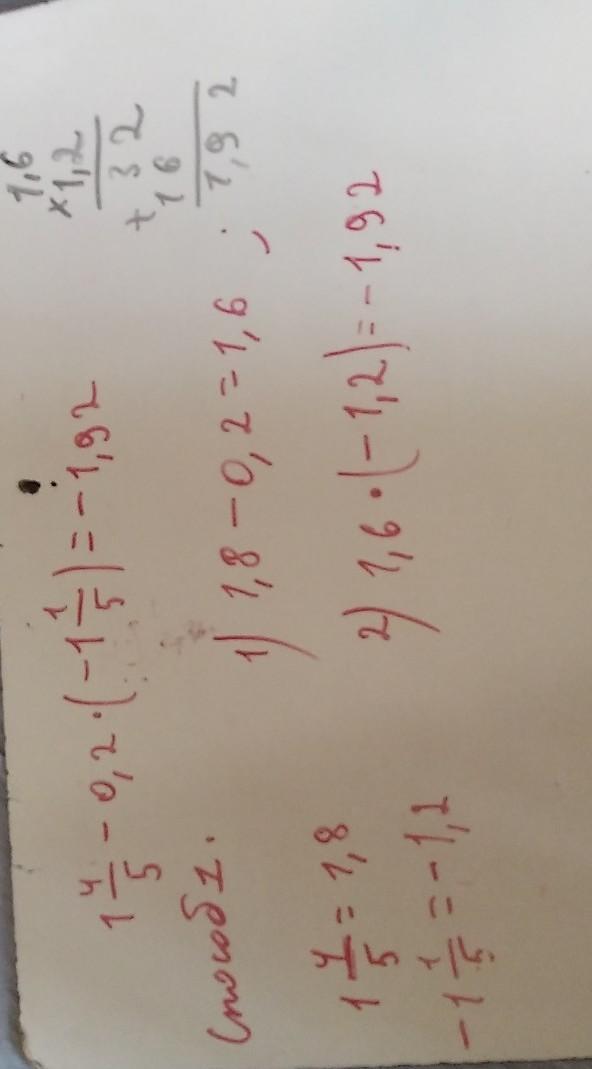 1 4/5 - 0,2 · (-1 1/5) = -1,92
Способ 1.
1 4/5 = 1,8
-1 1/5 = -1,2
1) 1,8 - 0,2 = 1,6 ;
2) 1,6 · (-1,2) = -1,92
1,6
×1,2
32
+
16
1,92